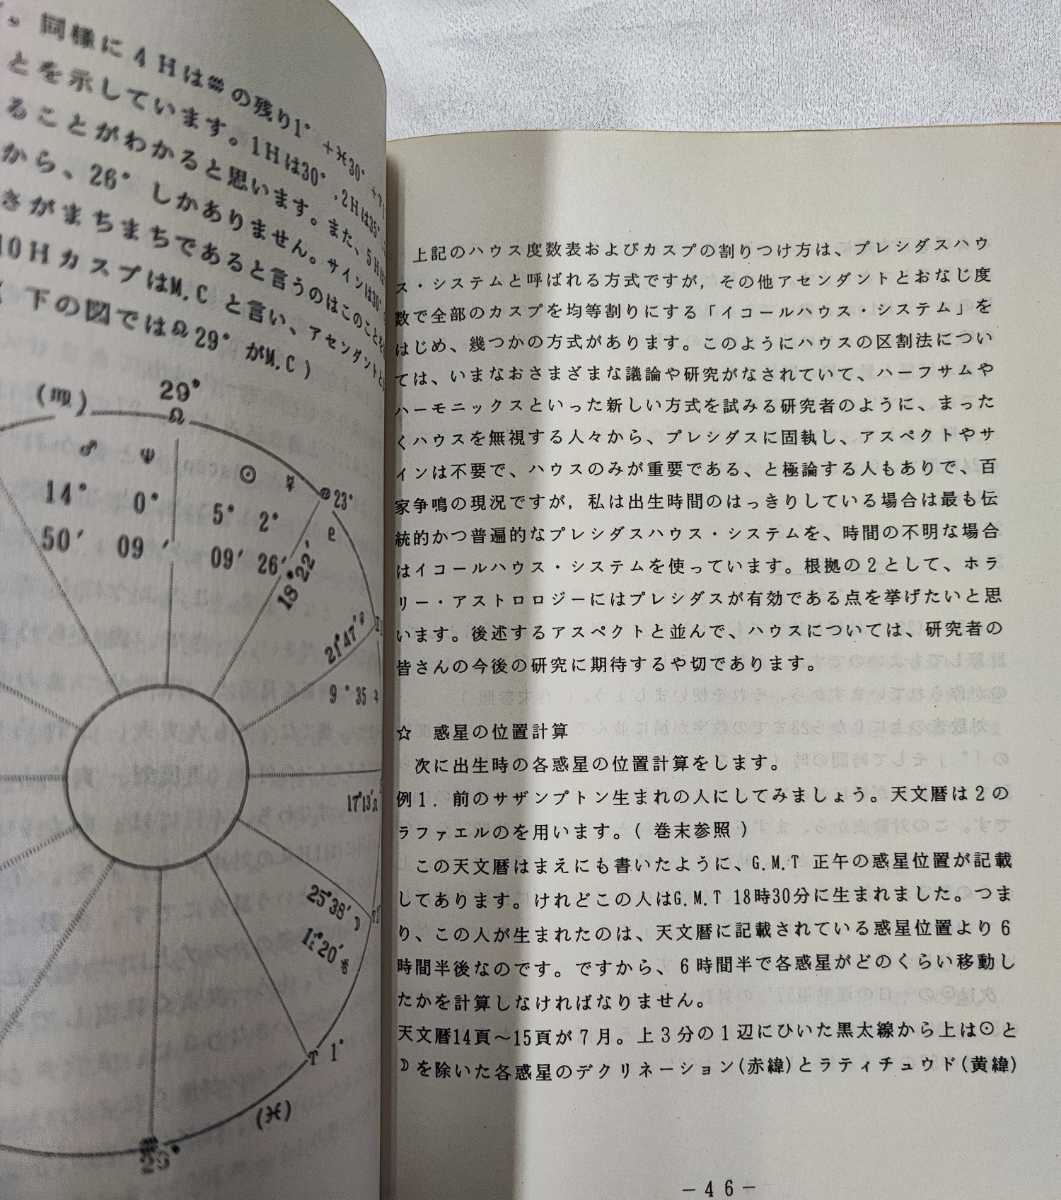 同様に4Hは♒の残り1°+♓30°+
とを示しています。1Hは30°,2Hは35°
ることがわかると思います。また、5H
から、26°しかありません。サインは30°
きがまちまちであると言うのはこのことを
10HカスプはM.Cと言い、アセンダントと
下の図では♌29°がM.C)
29°
(♍)
♌
♂ ♆ ☉ ☿
23°
14° 0° 5° 2°
50′ 09′ 09′ 26′
18°22′
21°47′
9°35
17°13′
25°38′☽
11°20′
♈ 1°
(♓)
♒
29°
上記のハウス度数表およびカスプの割りつけ方は、プレシダスハウ
ス・システムと呼ばれる方式ですが,その他アセンダントとおなじ度
数で全部のカスプを均等割りにする「イコールハウス・システム」を
はじめ、幾つかの方式があります。このようにハウスの区割法につい
ては、いまなおさまざまな議論や研究がなされていて、ハーフサムや
ハーモニックスといった新しい方式を試みる研究者のように、まった
くハウスを無視する人々から、プレシダスに固執し、アスペクトやサ
インは不要で、ハウスのみが重要である、と極論する人もありで、百
家争鳴の現況ですが,私は出生時間のはっきりしている場合は最も伝
統的かつ普遍的なプレシダスハウス・システムを、時間の不明な場合
はイコールハウス・システムを使っています。根拠の2として、ホラ
リー・アストロロジーにはプレシダスが有効である点を挙げたいと思
います。後述するアスペクトと並んで、ハウスについては、研究者の
皆さんの今後の研究に期待するや切であります。
☆ 惑星の位置計算
次に出生時の各惑星の位置計算をします。
例1.前のサザンプトン生まれの人にしてみましょう。天文暦は2の
ラファエルのを用います。(巻末参照)
この天文暦はまえにも書いたように、G.M.T 正午の惑星位置が記載
してあります。けれどこの人はG.M.T 18時30分に生まれました。つま
り、この人が生まれたのは、天文暦に記載されている惑星位置より6
時間半後なのです。ですから、6時間半で各惑星がどのくらい移動し
たかを計算しなければなりません。
天文暦14頁〜15頁が7月。上3分の1辺にひいた黒太線から上は☉と
☽を除いた各惑星のデクリネーション(赤緯)とラティチュウド(黄緯)
−46−